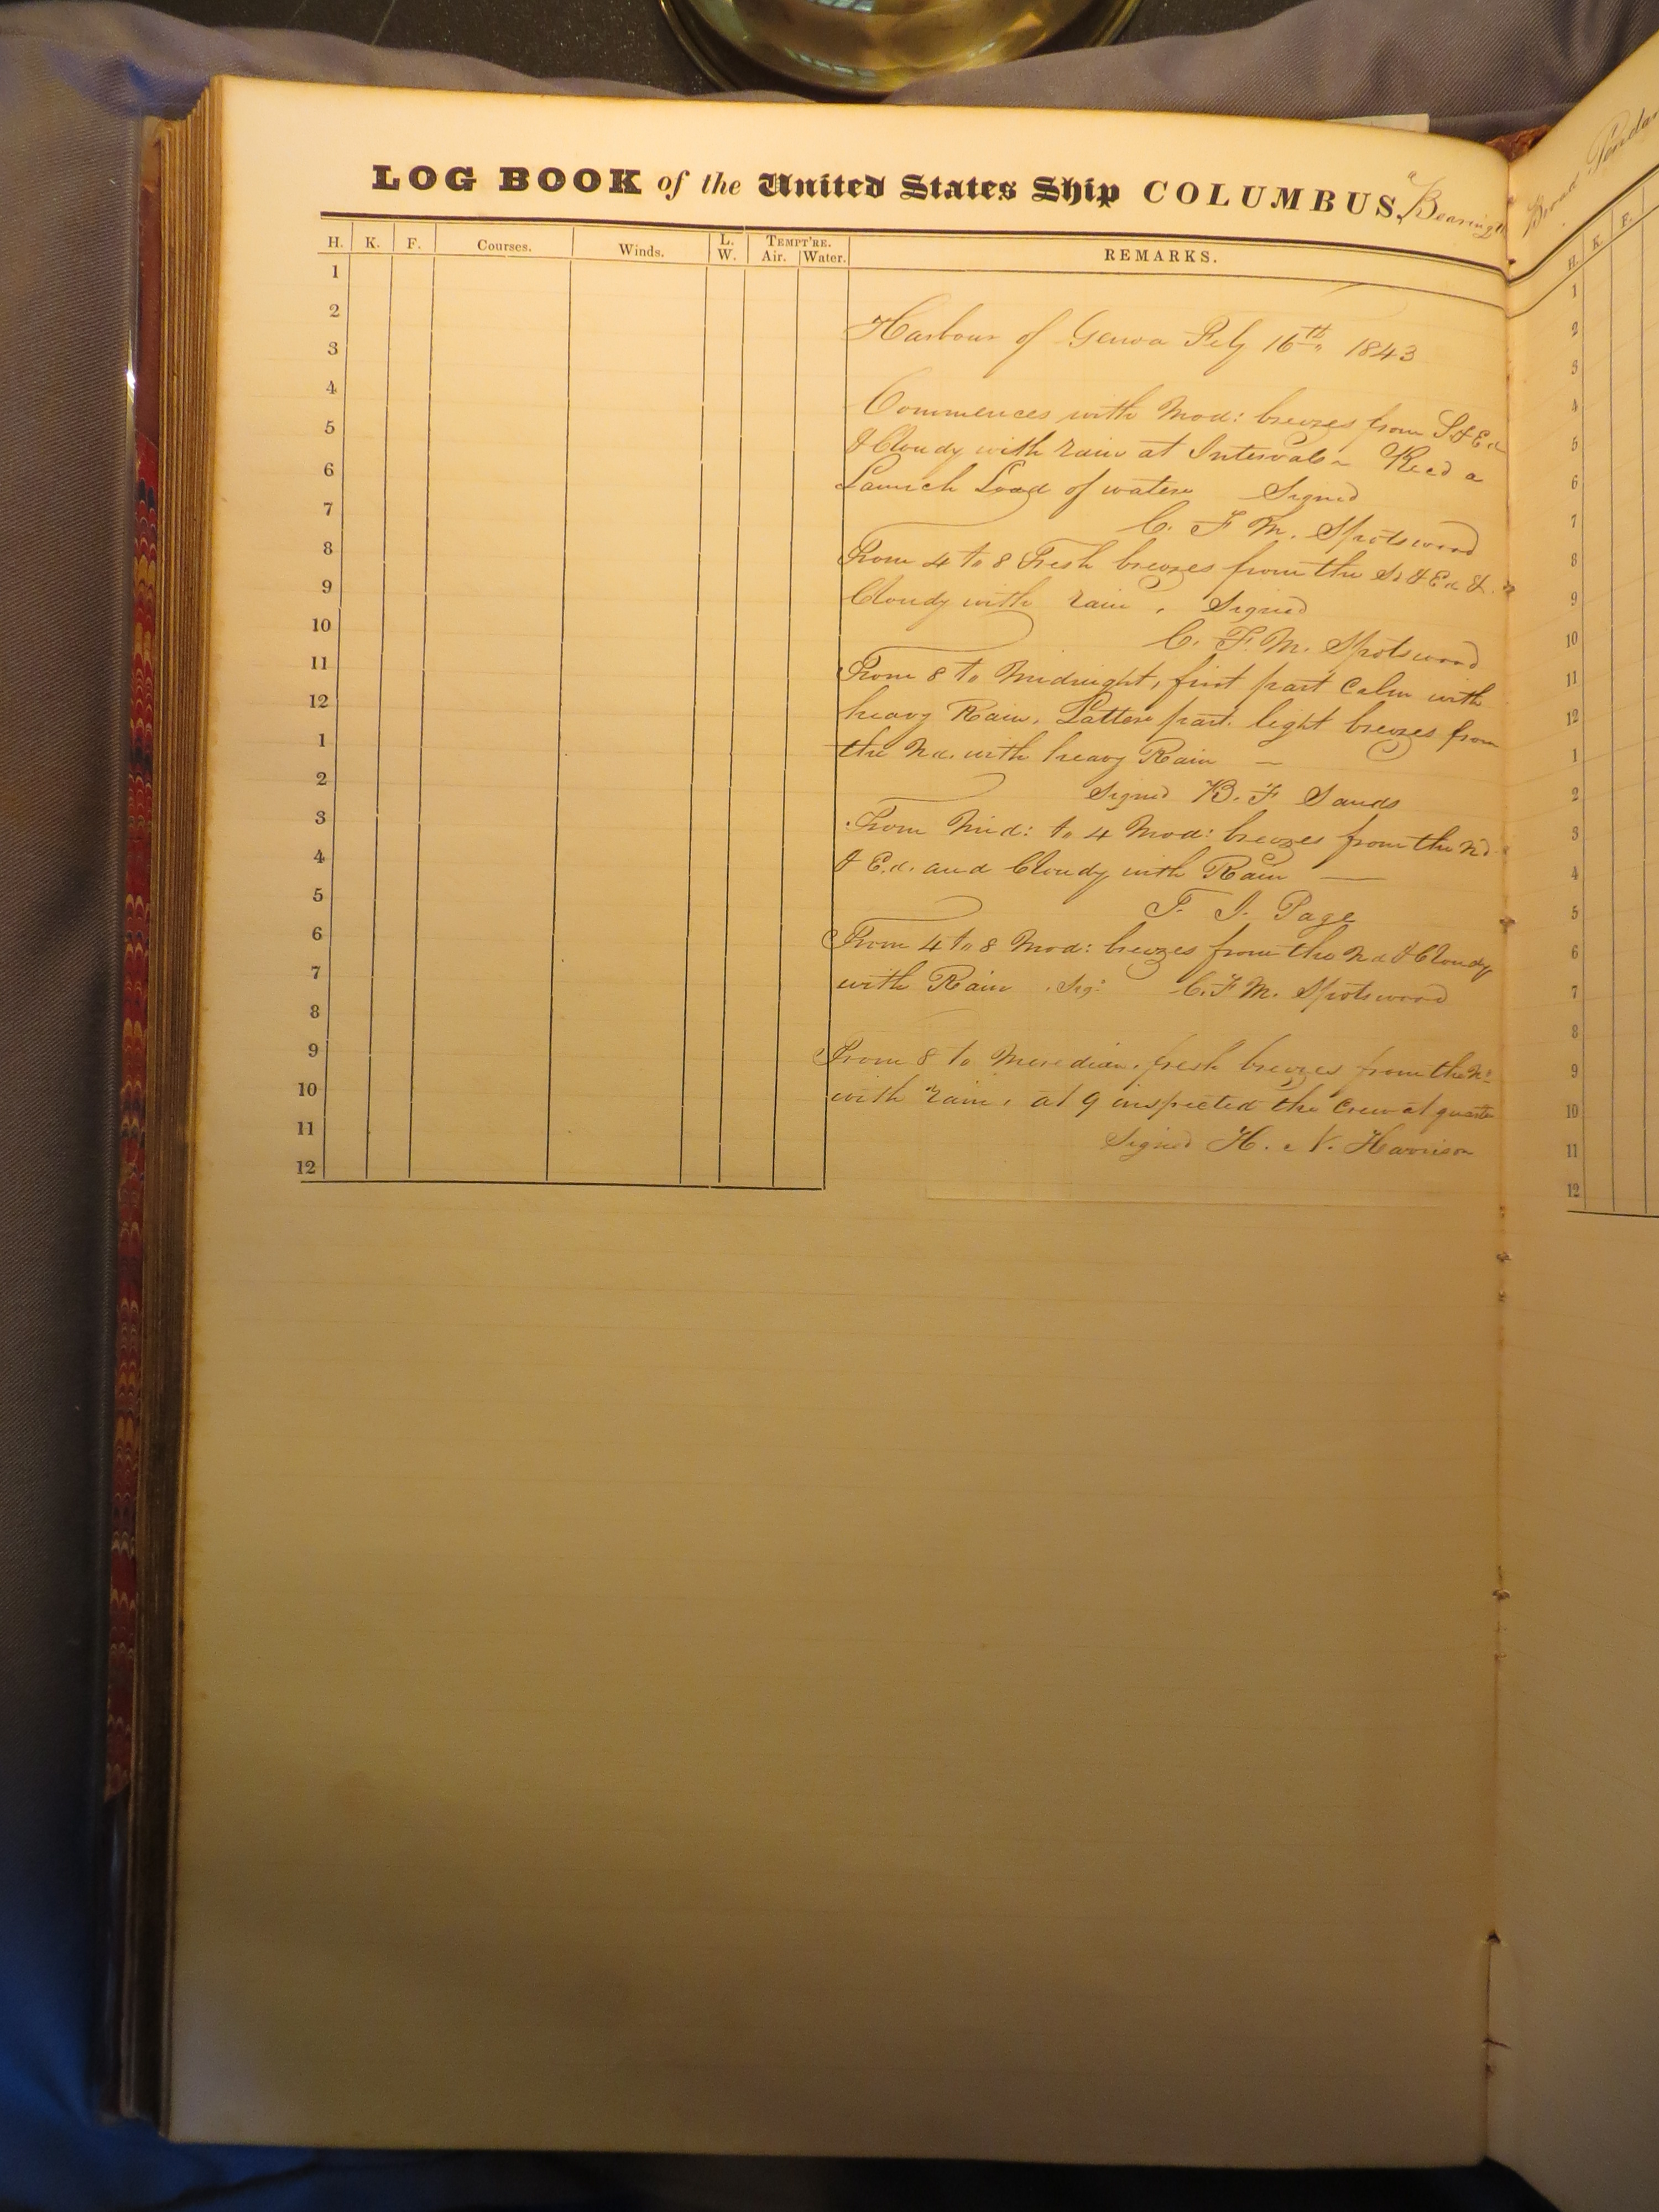 LOG BOOK of the United States Ship COLUMBUS, "Bearing"
H. K. F. Courses. Winds. L. W. TEMPT'RE. Air. Water. REMARKS.
1
2
3
4
5
6
7
8
9
10
11
12
1
2
3
4
5
6
7
8
9
10
11
12
Harbour of Genoa Feby 16th 1843
Commences with Mod: breezes from S & Ed
& Cloudy with rain at Intervals Recd a
Launch Load of water Signed
C. F. M. Spotswood
From 4 to 8 Fresh breezes from the Sd & Ed &
Cloudy with rain, Signed
C. F. M. Spotswood
From 8 to Midnight, first part Calm with
heavy Rain. Latter part light breezes from
the Nd. with heavy Rain —
Signed B. F Sands
From Mid: to 4 Mod: breezes from the Nd
& Ed. and Cloudy with Rain —
T. J. Page
From 4 to 8 Mod: breezes from the Nd & Cloudy
with Rain. Sig: C. F. M. Spotswood
From 8 to Meredian, fresh breezes from the Nd
with rain, at 9 inspected the Crew at quarters
Signed H. N. Harrison
Broad
H. K. F.
1
2
3
4
5
6
7
8
9
10
11
12
1
2
3
4
5
6
7
8
9
10
11
12